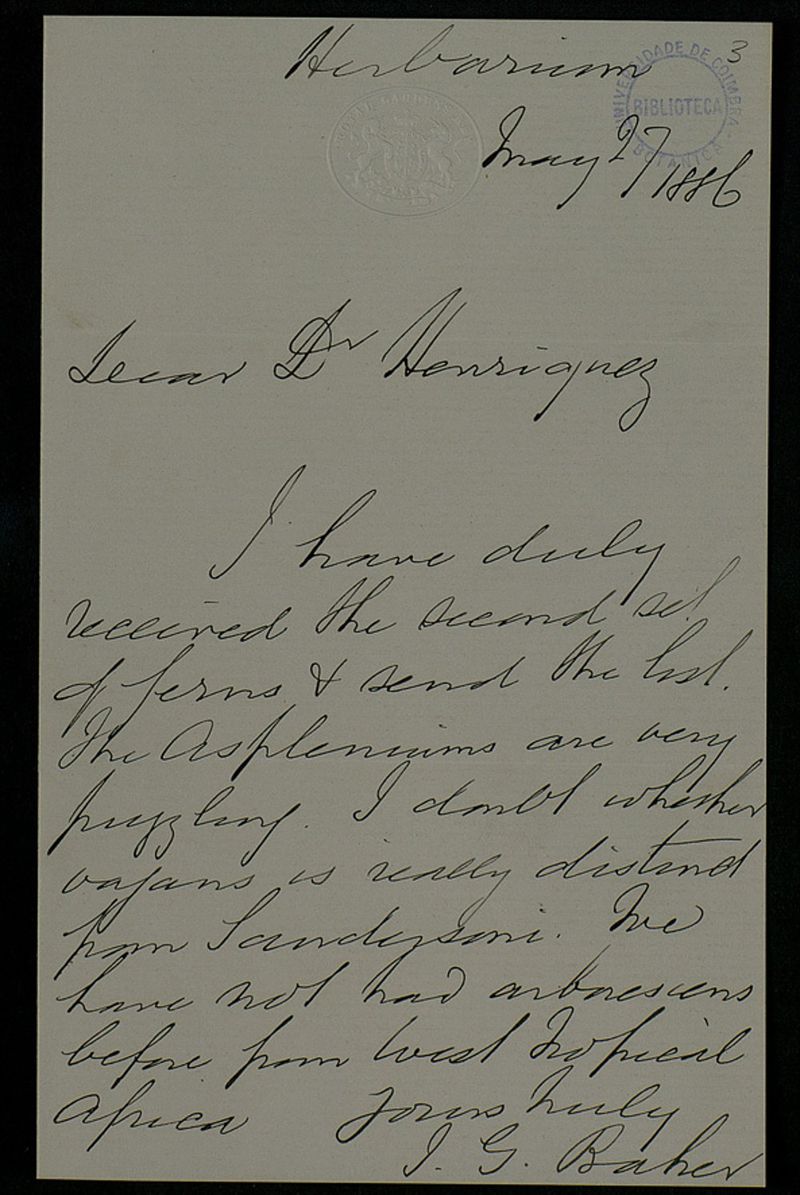 Herbarium
3
UNIVERSIDADE DE COIMBRA
BIBLIOTECA
BOTANICA
May 27 1886
Dear Dr Henriquez
I have duly
received the second set
of ferns & send the list.
The Aspleniums are very
puzzling. I doubt whether
vagans is really distinct
from Sandersoni. We
have not had arborescens
before from West Tropical
Africa Yours truly
J. G. Baker